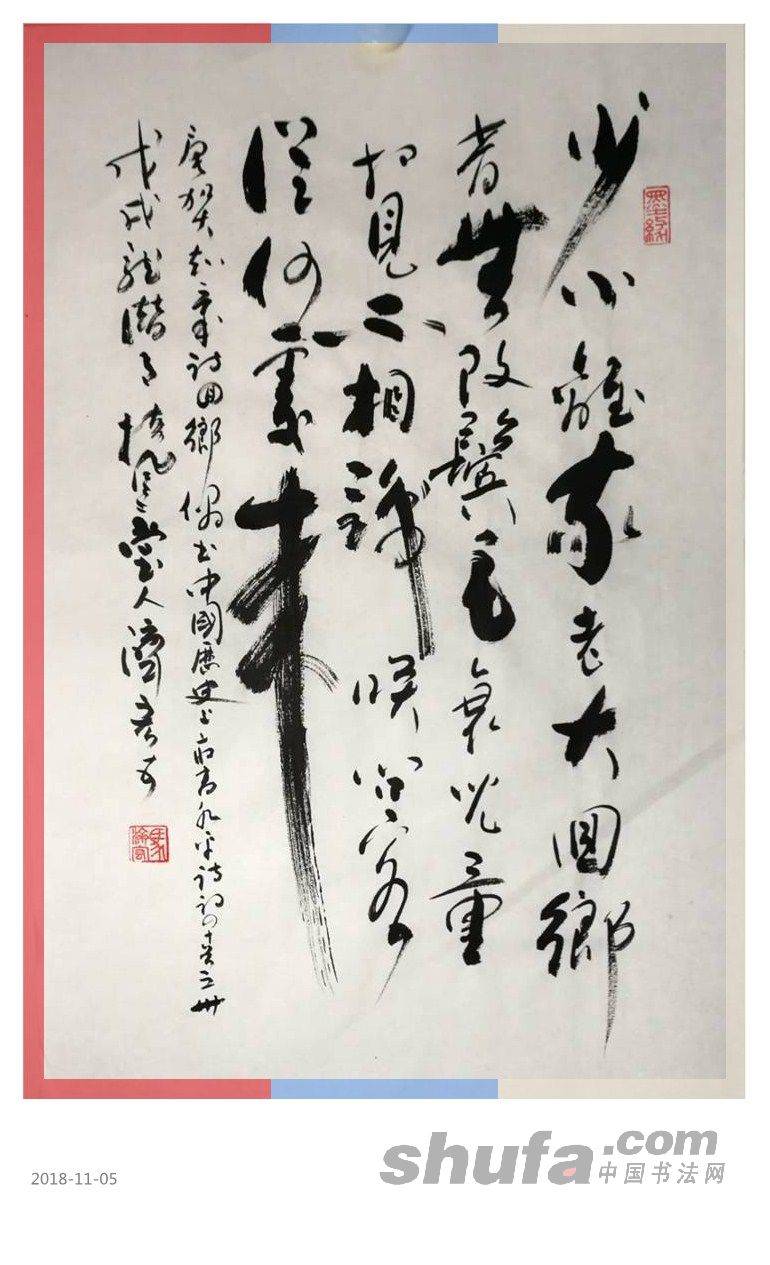 少小離家老大回鄉
音無改鬢毛衰兒童
相見不相識咲問客
從何處來
唐賀知章詩回鄉偶書中國歷史上最高水平詩詞之卅
戊戌龍潛月風堂人濟
2018-11-05
shufa.com
中国书法网